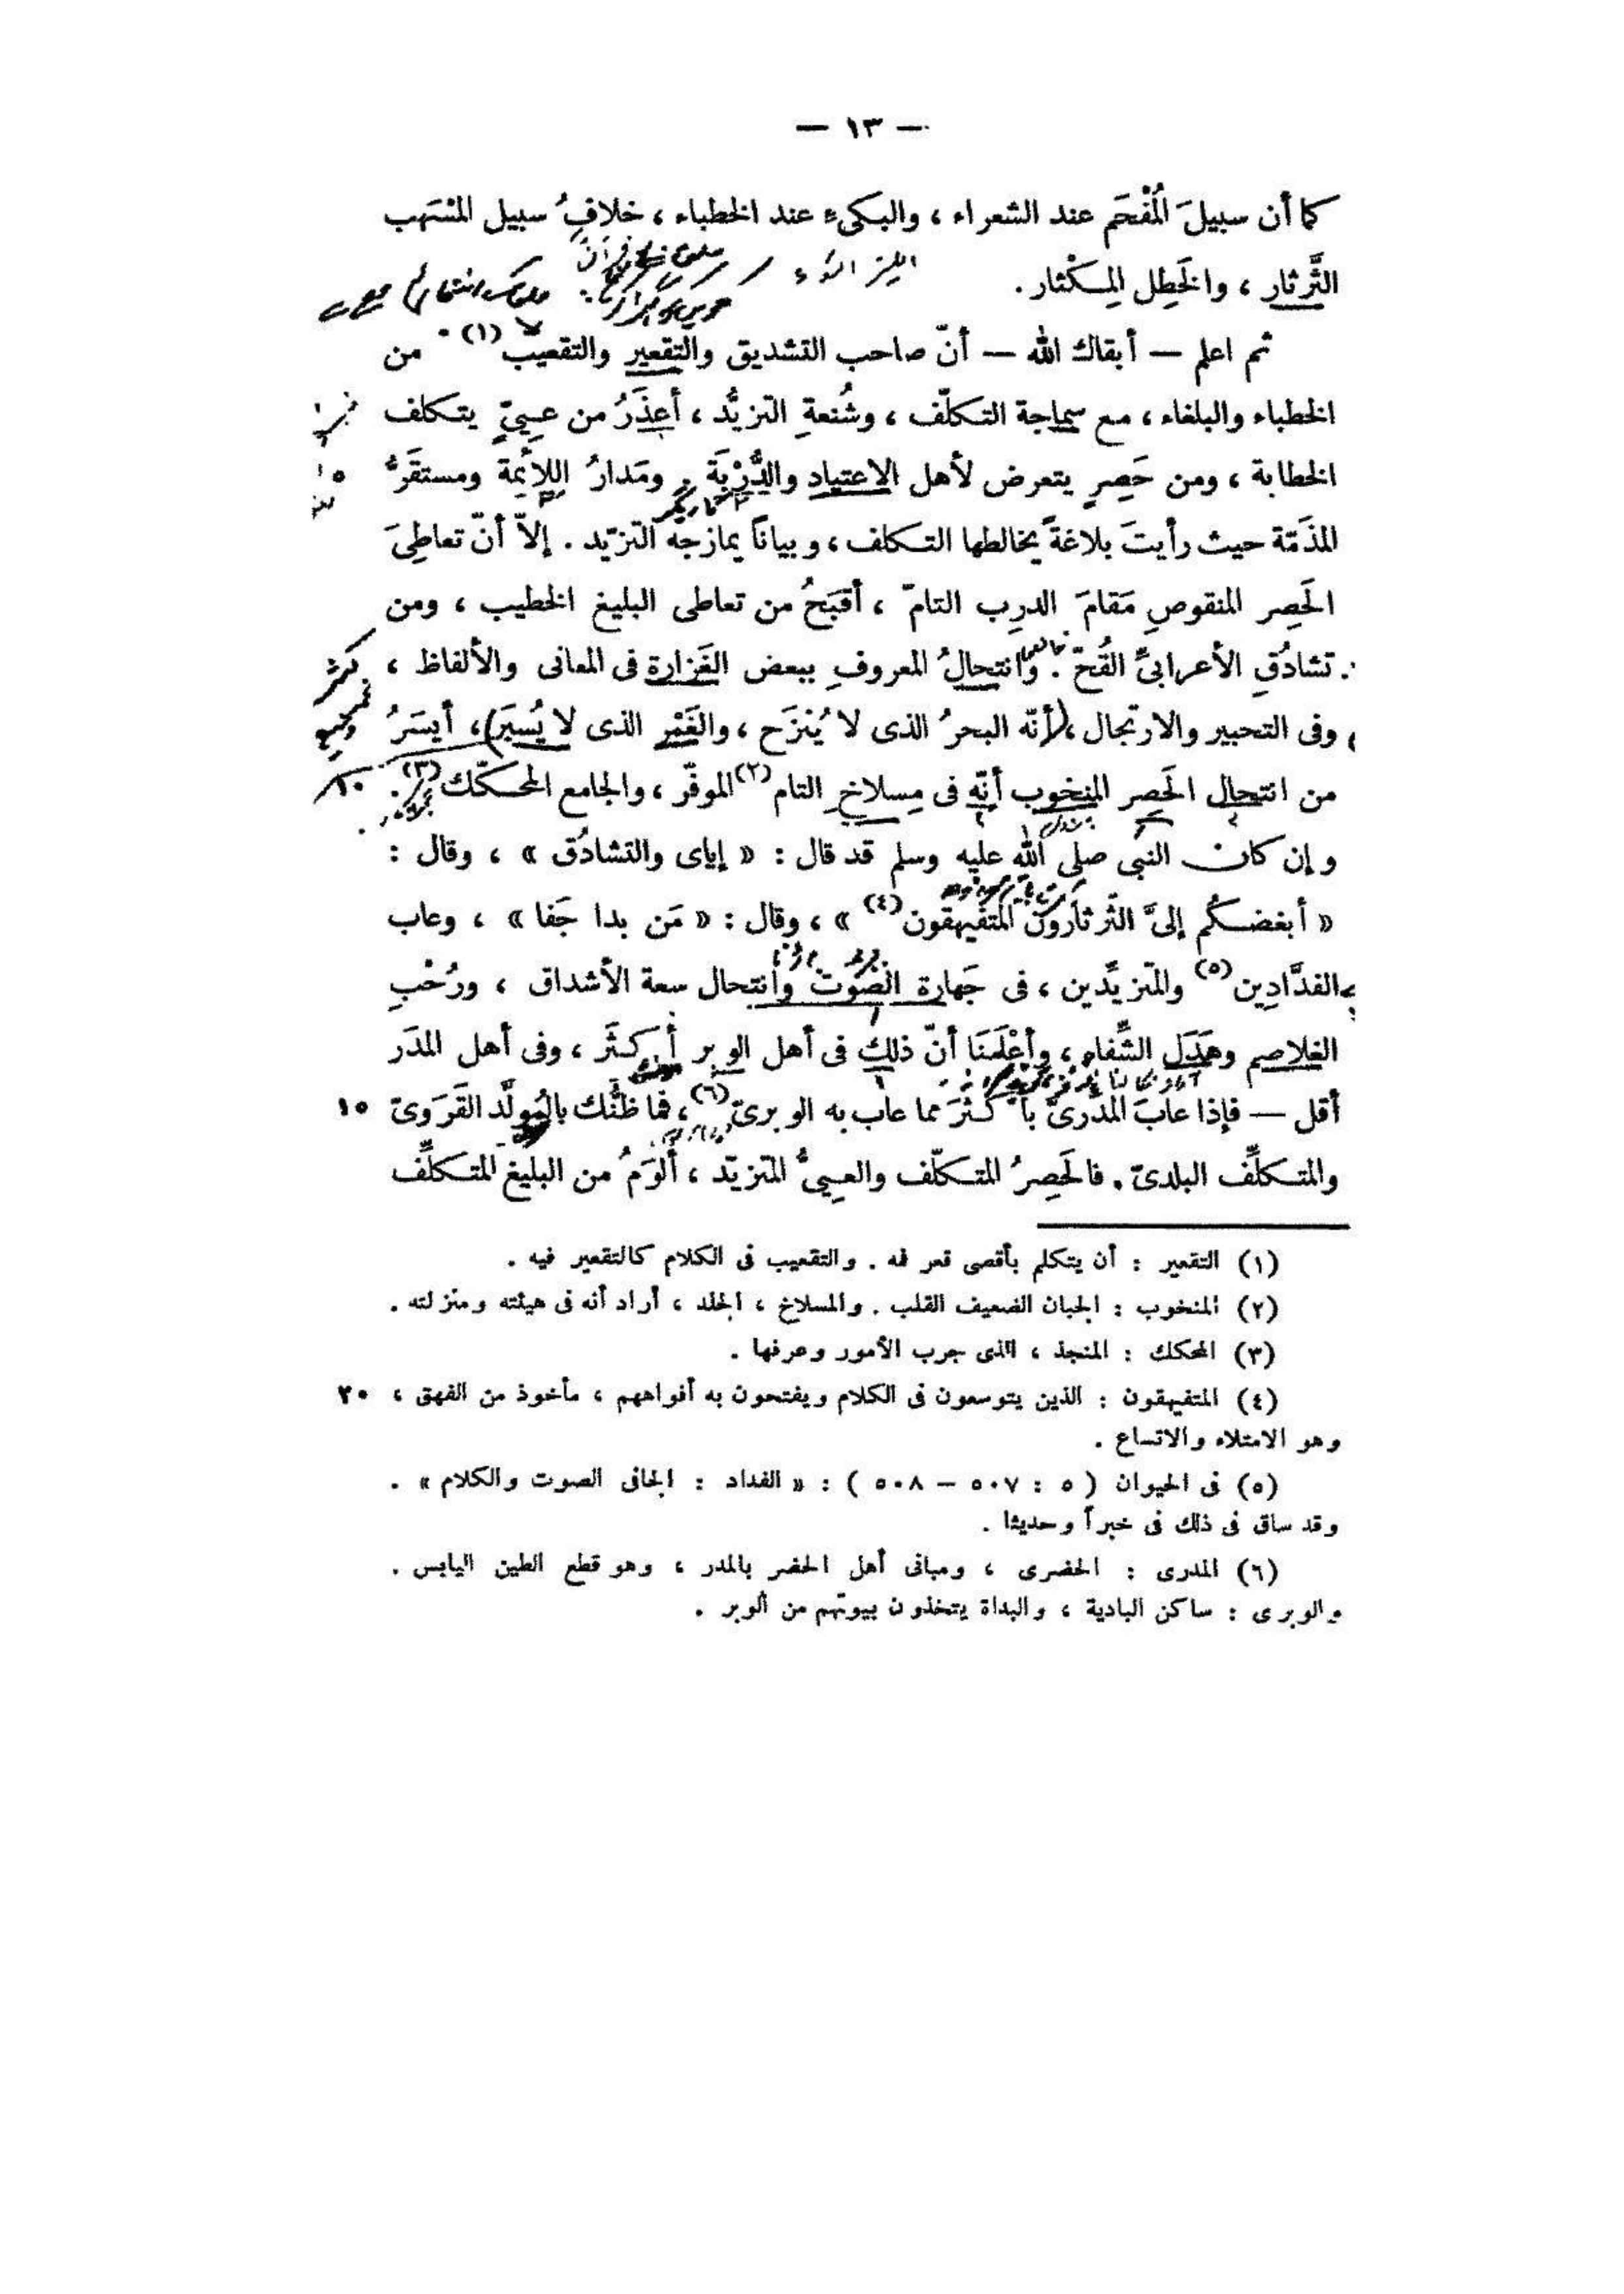 — ١٣ —
كما أن سبيلَ المُفْحَم عند الشعراء ، والبكىء عند الخطباء ، خلافُ سبيل المُسْهِب
الثَّرثار ، والخَطِل المِكْثار .
ثم اعلم — أبقاك الله — أنّ صاحب التشديق والتقعير والتقعيب (١) من
الخطباء والبلغاء ، مع سماجة التكلّف ، وشُنعةِ التزيُّد ، أعذَرُ من عيىٍّ يتكلف
الخطابة ، ومن حَصِرٍ يتعرض لأهل الاعتياد والدُّرْبَة . ومَدارُ اللائمة ومستقَرُّ ٥
المذَمّة حيث رأيتَ بلاغةً يخالطها التكلف ، وبياناً يمازجه التزيّد . إلاّ أنّ تعاطِىَ
الحَصِر المنقوصِ مَقامَ الدرِب التامّ ، أقبَحُ من تعاطى البليغ الخطيب ، ومن
تشادُقِ الأعرابىِّ القُحّ . وانتحالُ المعروفِ ببعض الغَزارة فى المعانى والألفاظ ،
وفى التحبير والارتجال ، أنّه البحرُ الذى لا يُنزَح ، والغَمْر الذى لا يُسبَر ، أيسَرُ
من انتحال الحَصِر المنخوب أنّه فى مِسلاخ التام (٢) الموفّر ، والجامع المحكّك (٣) . ١٠
وإن كان النبى صلى الله عليه وسلم قد قال : « إياى والتشادُق » ، وقال :
« أبغضكُم إلىَّ الثّرثارون المتفيهقون (٤) » ، وقال : « مَن بدا جَفا » ، وعاب
الفدَّادِين (٥) والمتزيِّدين ، فى جَهارة الصَّوت وانتحال سعة الأشداق ، ورُحْبِ
الغلاصم وهَدَل الشِّفاه ، وأعْلَمَنَا أنّ ذلك فى أهل الوبر أكثَر ، وفى أهل المدَر
أقل — فإذا عابَ المدَرىّ بأكثَرَ مما عاب به الوبرىّ (٦) ، فما ظنُّك بالمُولَّد القَرَوىّ ١٥
والمتكلِّف البلدىّ . فالحَصِرُ المتكلّف والعيىُّ المتزيّد ، ألوَمُ من البليغ المتكلِّف
(١) التقعير : أن يتكلم بأقصى قعر فمه . والتقعيب فى الكلام كالتقعير فيه .
(٢) المنخوب : الجبان الضعيف القلب . والمسلاخ ، الجلد ، أراد أنه فى هيئته ومنزلته .
(٣) المحكك : المنجذ ، الذى جرب الأمور وعرفها .
(٤) المتفيهقون : الذين يتوسعون فى الكلام ويفتحون به أفواههم ، مأخوذ من الفهق ، ٢٠
وهو الامتلاء والاتساع .
(٥) فى الحيوان ( ٥ : ٥٠٧ — ٥٠٨ ) : « الفداد : الجافى الصوت والكلام » .
وقد ساق فى ذلك فى خبراً وحديثا .
(٦) المدرى : الحضرى ، ومبانى أهل الحضر بالمدر ، وهو قطع الطين اليابس .
والوبرى : ساكن البادية ، والبداة يتخذون بيوتهم من ألوبر .